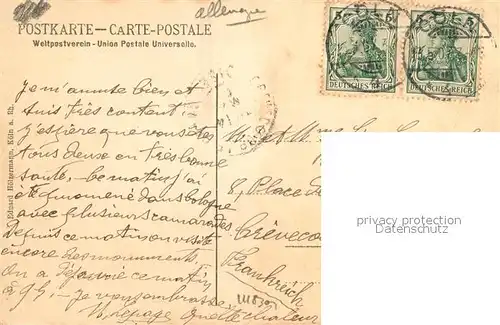 allemagne
POSTKARTE – CARTE-POSTALE
Weltpostverein - Union Postale Universelle.
DEUTSCHES REICH
DEUTSCHES REICH
Je m'amuse bien et
suis très content
j'espère que vous êtes
tous deux en très bonne
santé, ce matin j'ai
été promené dans Cologne
avec plusieurs camarades
Depuis ce matin on visite
encore des monuments
On a déjeuné ce matin
à 9 h – Je vous embrasse
Lepage Quelle chaleur
M. et Mme
8, Place du
Crèvecoeur
Frankreich
Eduard Hültzermann, Köln a. Rh.
privacy protection
Datenschutz